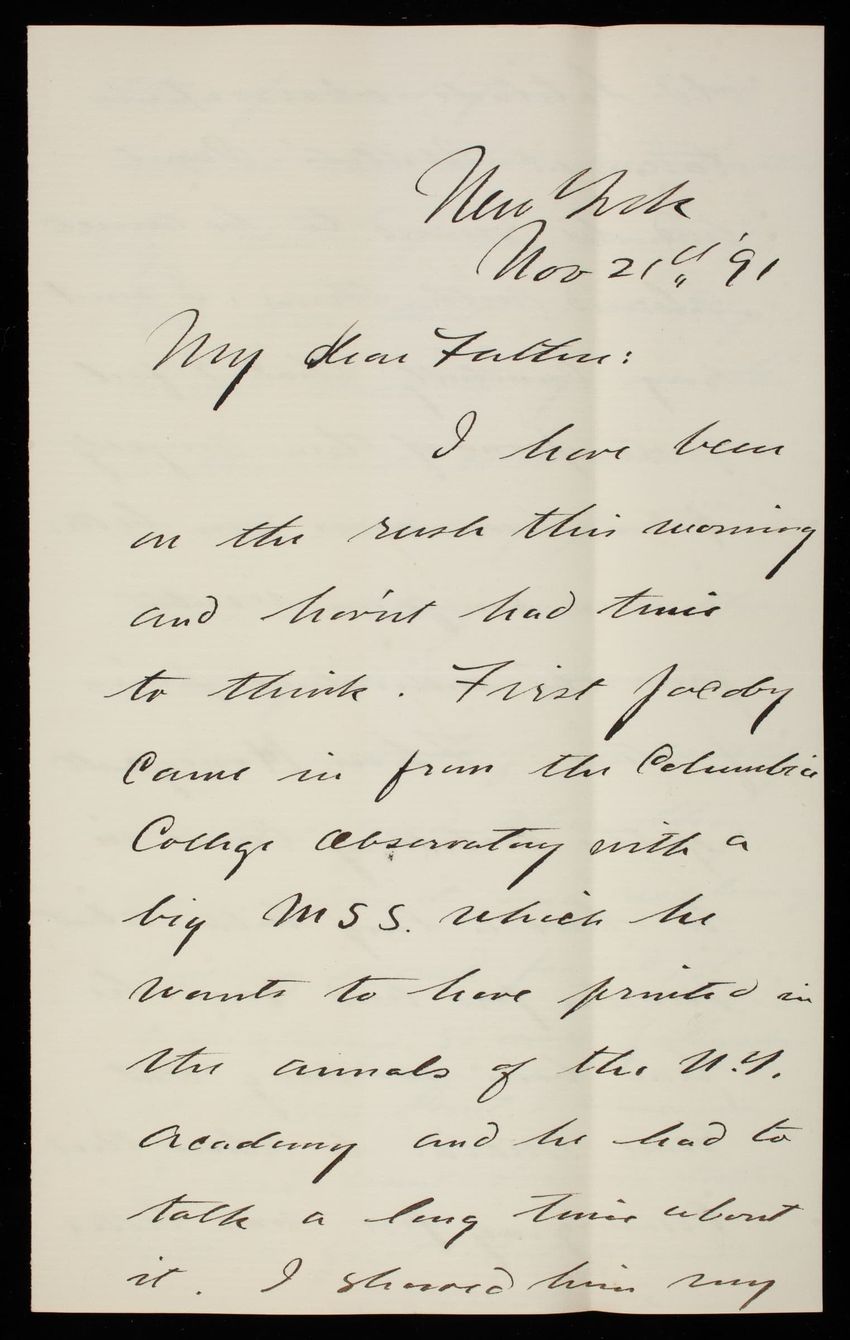 New York
Nov 21st '91
My dear Father:
I have been
on the rush this morning
and hav'nt had time
to think. First Jacoby
came in from the Columbia
College Observatory with a
big MSS. which he
wants to have printed in
the annals of the N.Y.
Academy and he had to
talk a long time about
it. I showed him my